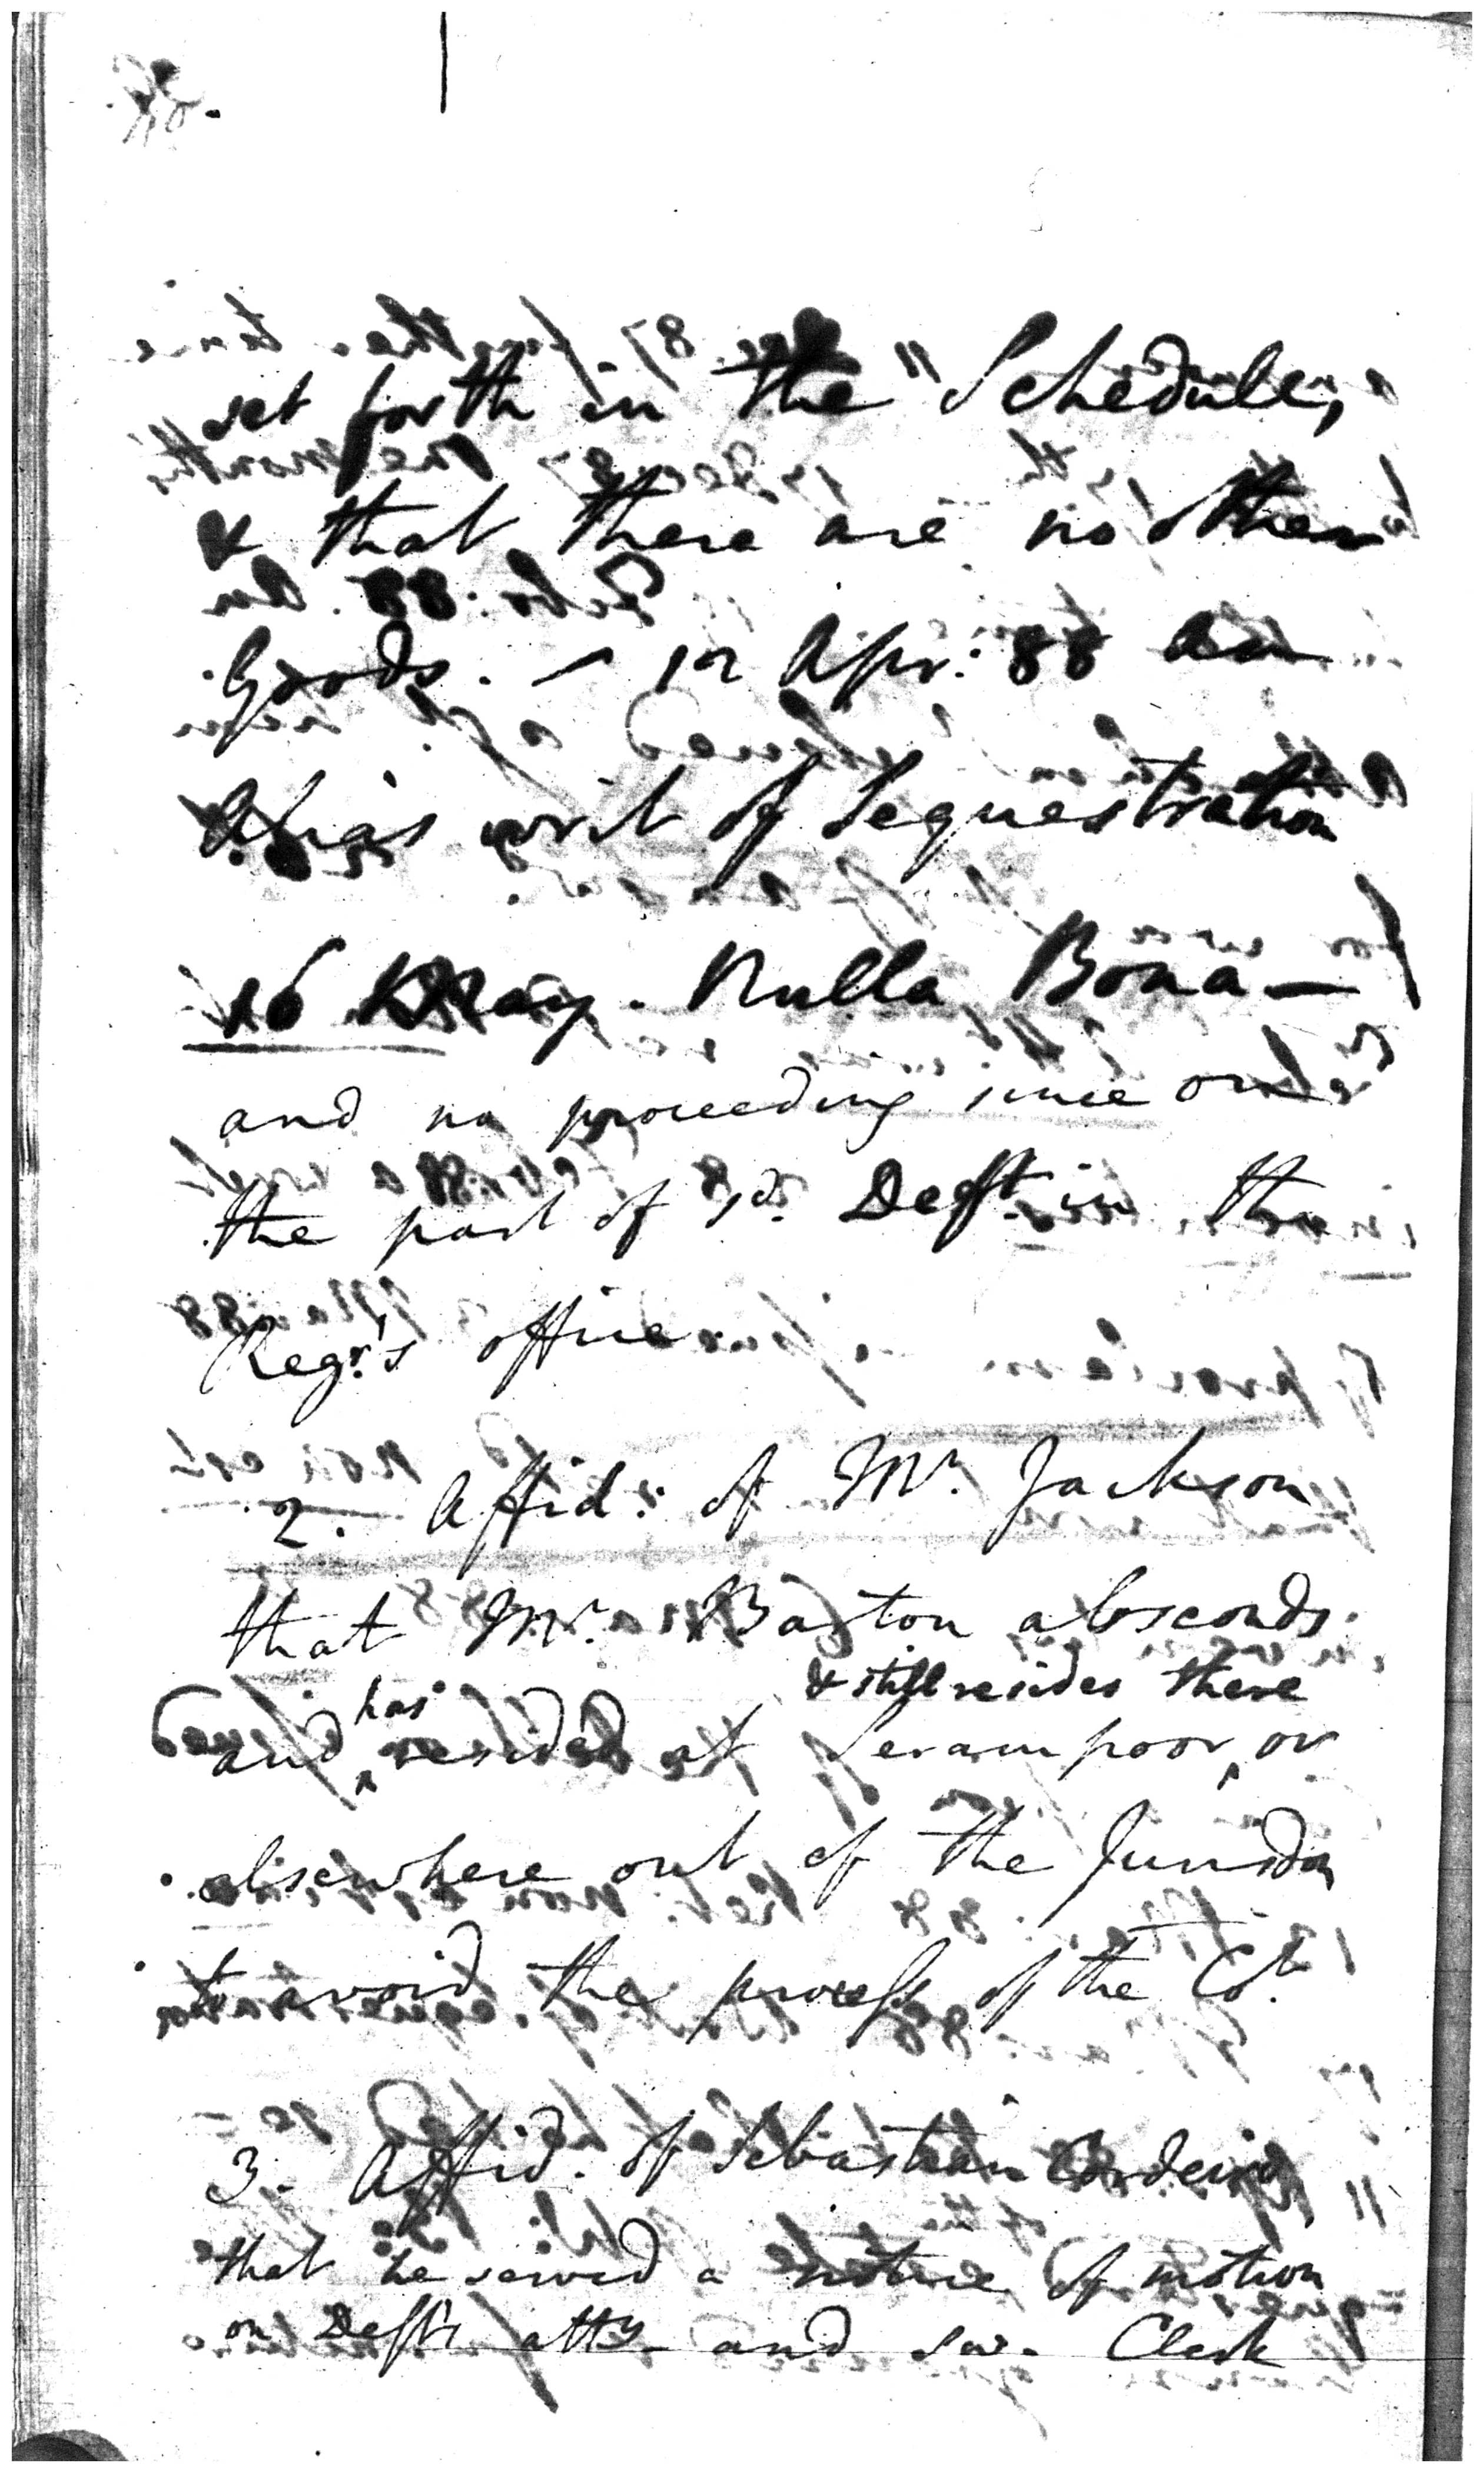 set forth in the "Schedule,
& that there are no other
Goods. – 12 Apr: 88 an
Alias writ of Sequestration
16 May. Nulla Bona —
and no proceeding since on
the part of sd. Deft. in the
Regr's office.
2. Affid: of Mr. Jackson
that Mr. Barton absconds.
& still resides there
has
and ‸ resided at Serampoor ‸ or
elsewhere out of the Jurisdon
to avoid the process of the Cot.
3. Affid. of Sebastian
that he served a notice of motion
on Deft's atty and sw. Clerk